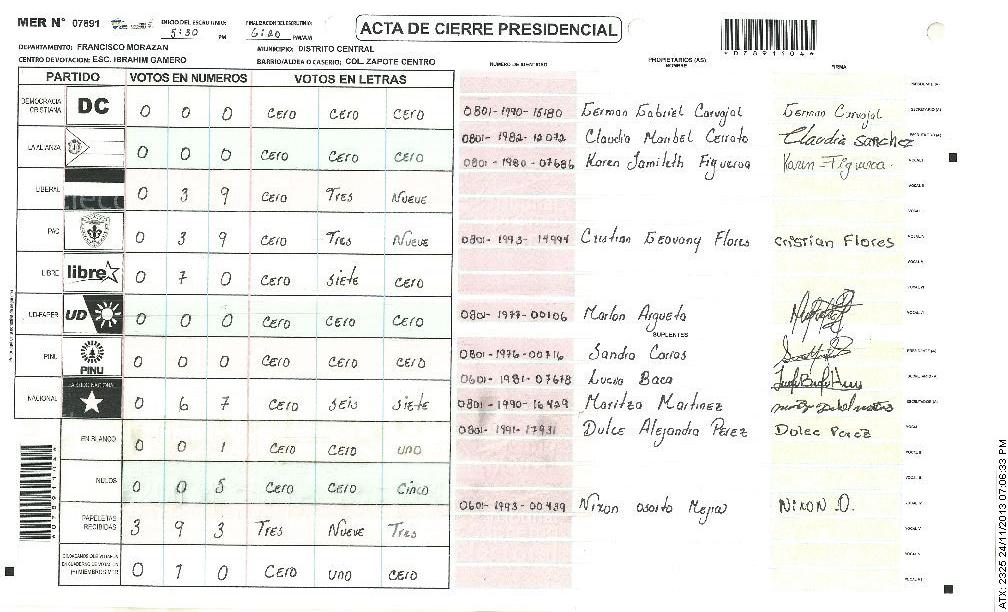 MER N° 07891
INICIO DEL ESCRUTINIO: 5:30 PM
FINALIZACION DEL ESCRUTINIO: 6:20 PM/AM
ACTA DE CIERRE PRESIDENCIAL
*078911046*
DEPARTAMENTO: FRANCISCO MORAZAN
MUNICIPIO: DISTRITO CENTRAL
CENTRO DE VOTACION: ESC. IBRAHIM GAMERO
BARRIO/ALDEA O CASERIO: COL. ZAPOTE CENTRO
PARTIDO VOTOS EN NUMEROS VOTOS EN LETRAS
NUMERO DE IDENTIDAD PROPIETARIOS (AS) NOMBRE FIRMA
DEMOCRACIA CRISTIANA DC 0 0 0 Cero Cero Cero
LA ALIANZA 0 0 0 Cero Cero Cero
LIBERAL 0 3 9 Cero Tres Nueve
PAC 0 3 9 Cero Tres Nueve
LIBRE libre 0 7 0 Cero Siete Cero
UD-FAPER UD 0 0 0 Cero Cero Cero
PINU PINU 0 0 0 Cero Cero Cero
NACIONAL PARTIDO NACIONAL 0 6 7 Cero Seis Siete
EN BLANCO 0 0 1 Cero Cero uno
NULOS 0 0 5 Cero Cero Cinco
PAPELETAS RECIBIDAS 3 9 3 Tres Nueve Tres
CIUDADANOS QUE VOTARON EN CUADERNO DE VOTACION (+) MIEMBROS MER 0 1 0 Cero uno Cero
0801-1990-15180 German Gabriel Carvajal German Carvajal
0801-1982-12072 Claudia Maribel Cerrato Claudia Sanchez
0801-1980-07686 Karen Jamileth Figueroa Karen Figueroa
0801-1993-14994 Cristian Geovany Flores Cristian Flores
0801-1977-00106 Marlon Argueta
SUPLENTES
0801-1976-00716 Sandra Carias
0601-1981-07678 Lucia Baca
0801-1990-16429 Maritza Martinez
0801-1991-17931 Dulce Alejandra Perez Dulce Perez
0601-1993-00439 Nixon osorto Mejia Nixon O.
ATX: 2325 24/11/2013 07:06:33 PM